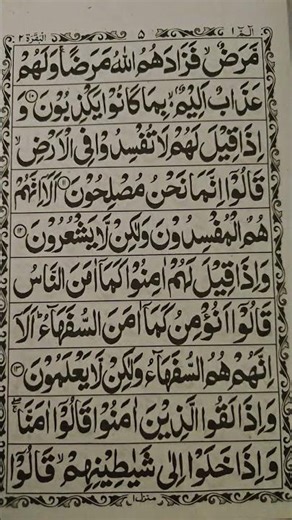 الٓمّٓ ١ ٥ البقرة ٢
مَّرَضٌ ۙ فَزَادَهُمُ اللّٰهُ مَرَضًا ۚ وَلَهُمْ
عَذَابٌ اَلِيْمٌۢ ۙ بِمَا كَانُوْا يَكْذِبُوْنَ ۝۱۰ وَ
اِذَا قِيْلَ لَهُمْ لَا تُفْسِدُوْا فِى الْاَرْضِ ۙ
قَالُوْٓا اِنَّمَا نَحْنُ مُصْلِحُوْنَ ۝۱۱ اَلَآ اِنَّهُمْ
هُمُ الْمُفْسِدُوْنَ وَلٰكِنْ لَّا يَشْعُرُوْنَ ۝۱۲
وَاِذَا قِيْلَ لَهُمْ اٰمِنُوْا كَمَآ اٰمَنَ النَّاسُ
قَالُوْٓا اَنُؤْمِنُ كَمَآ اٰمَنَ السُّفَهَآءُ ؕ اَلَآ
اِنَّهُمْ هُمُ السُّفَهَآءُ وَلٰكِنْ لَّا يَعْلَمُوْنَ ۝۱۳
وَاِذَا لَقُوا الَّذِيْنَ اٰمَنُوْا قَالُوْٓا اٰمَنَّا ۖۚ
وَاِذَا خَلَوْا اِلٰى شَيٰطِيْنِهِمْ ۙ قَالُوْٓا
منزل ١